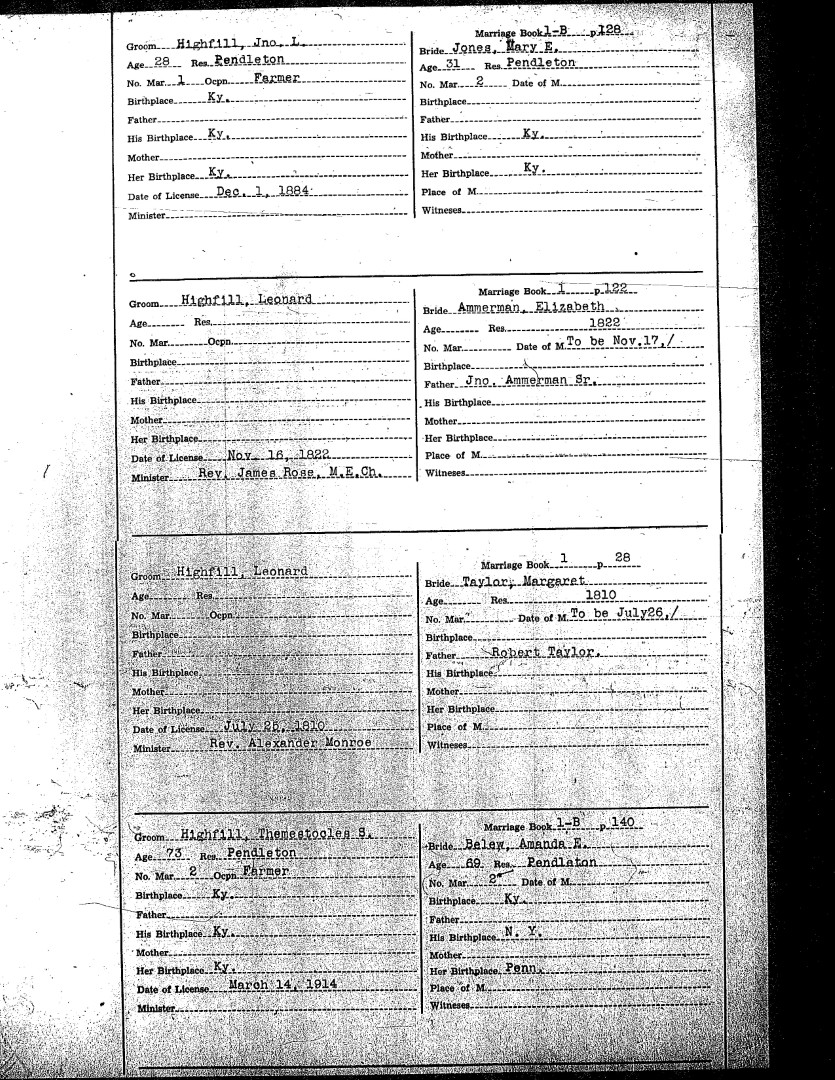 Groom Highfill, Jno. L.
Age 28 Res. Pendleton
No. Mar. 1 Ocpn. Farmer
Birthplace Ky.
Father
His Birthplace Ky.
Mother
Her Birthplace Ky.
Date of License Dec. 1, 1884
Minister
Marriage Book 1-B p. 128
Bride Jones, Mary E.
Age 31 Res. Pendleton
No. Mar. 2 Date of M.
Birthplace
Father
His Birthplace Ky.
Mother
Her Birthplace Ky.
Place of M.
Witneses
Groom Highfill, Leonard
Age Res.
No. Mar. Ocpn.
Birthplace
Father
His Birthplace
Mother
Her Birthplace
Date of License Nov. 16, 1822
Minister Rev. James Ross, M.E.Ch.
Marriage Book 1 p. 122
Bride Ammerman, Elizabeth
Age Res. 1822
No. Mar. Date of M. To be Nov.17,/
Birthplace
Father Jno. Ammerman Sr.
His Birthplace
Mother
Her Birthplace
Place of M.
Witneses
Groom Highfill, Leonard
Age Res.
No. Mar. Ocpn.
Birthplace
Father
His Birthplace
Mother
Her Birthplace
Date of License July 25, 1810
Minister Rev. Alexander Monroe
Marriage Book 1 p. 28
Bride Taylor, Margaret
Age Res. 1810
No. Mar. Date of M. To be July26,/
Birthplace
Father Robert Taylor.
His Birthplace
Mother
Her Birthplace
Place of M.
Witneses
Groom Highfill, Themestocles S.
Age 73 Res. Pendleton
No. Mar. 2 Ocpn. Farmer
Birthplace Ky.
Father
His Birthplace Ky.
Mother
Her Birthplace Ky.
Date of License March 14, 1914
Minister
Marriage Book 1-B p. 140
Bride Belew, Amanda E.
Age 69 Res. Pendleton
No. Mar. 2 Date of M.
Birthplace Ky.
Father
His Birthplace N. Y.
Mother
Her Birthplace Penn.
Place of M.
Witneses